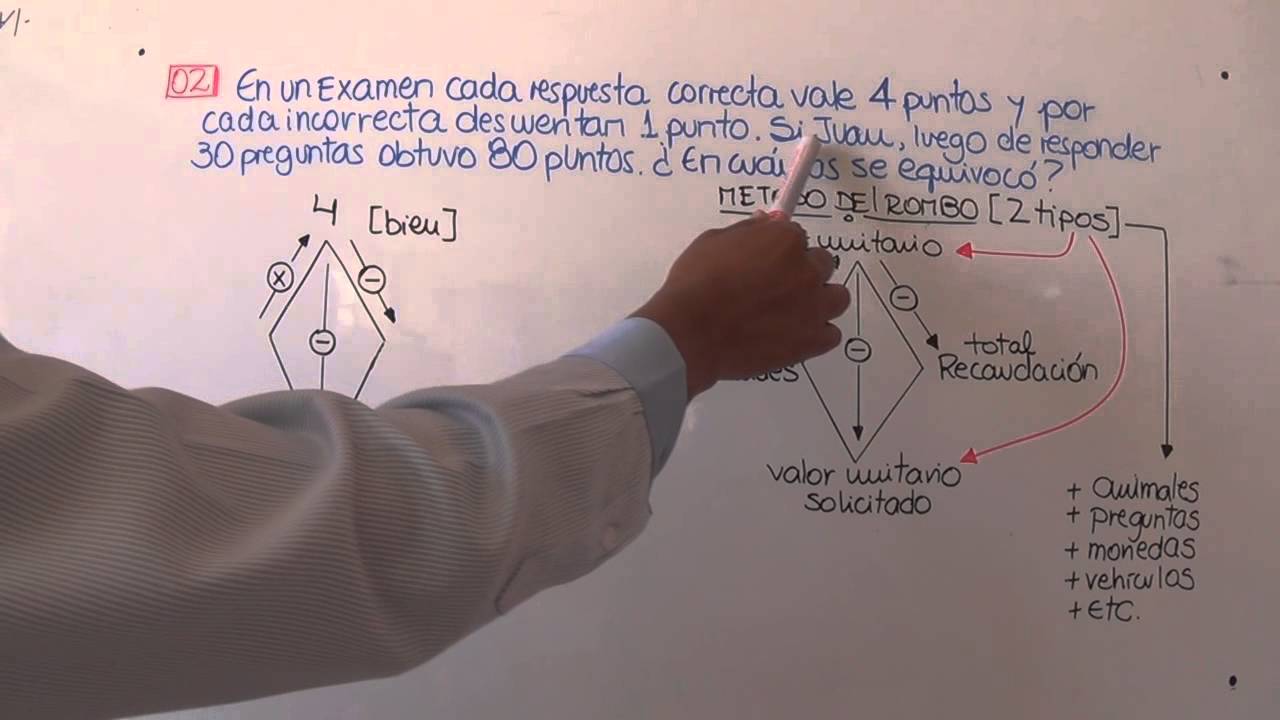 02 En un Examen cada respuesta correcta vale 4 puntos y por
cada incorrecta descuentan 1 punto. Si Juan, luego de responder
30 preguntas obtuvo 80 puntos. ¿En se equivocó?
METODO DEl ROMBO [2 tipos]
4 [bien]
unitario
total
Recaudación
valor unitario
solicitado
+ animales
+ preguntas
+ monedas
+ vehículos
+ Etc.